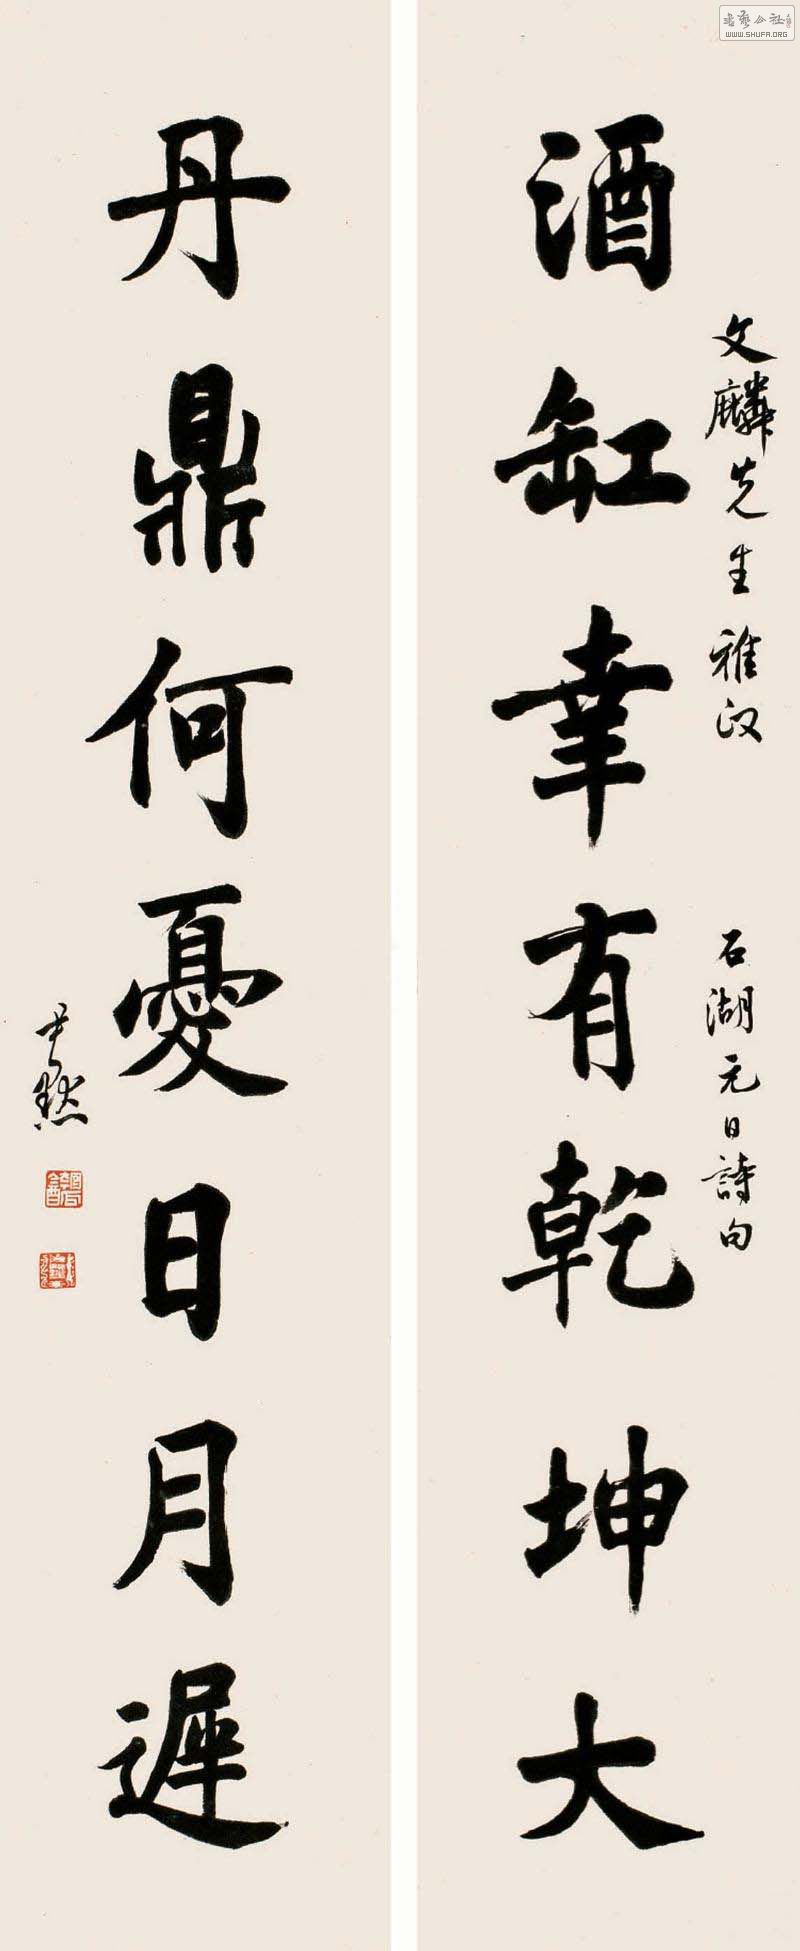 文麟先生雅政 石湖元日詩句
酒缸幸有乾坤大
丹鼎何憂日月遲
尹默
书艺公社
WWW.SHUFA.ORG